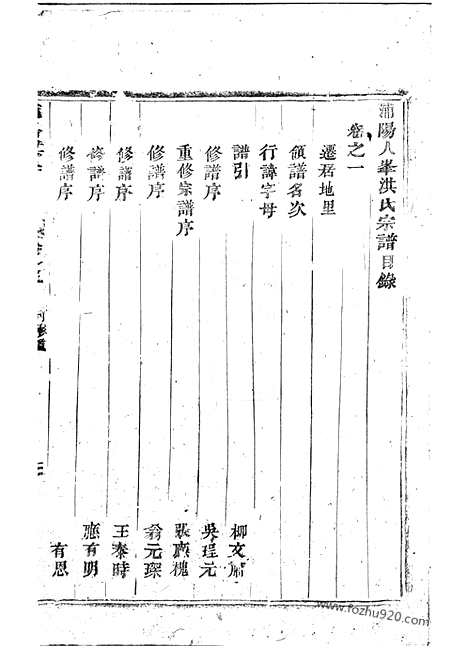 浦陽人峯洪氏宗譜目錄
卷之一
遷居地里
領譜名次
行諱字母
譜引 柳文
修譜序 吳珵元
重修宗譜序 張應槐
修譜序 翁元琛
修譜序 王泰時
修譜序 應有明
修譜序 有恩
www.fozhu920.com